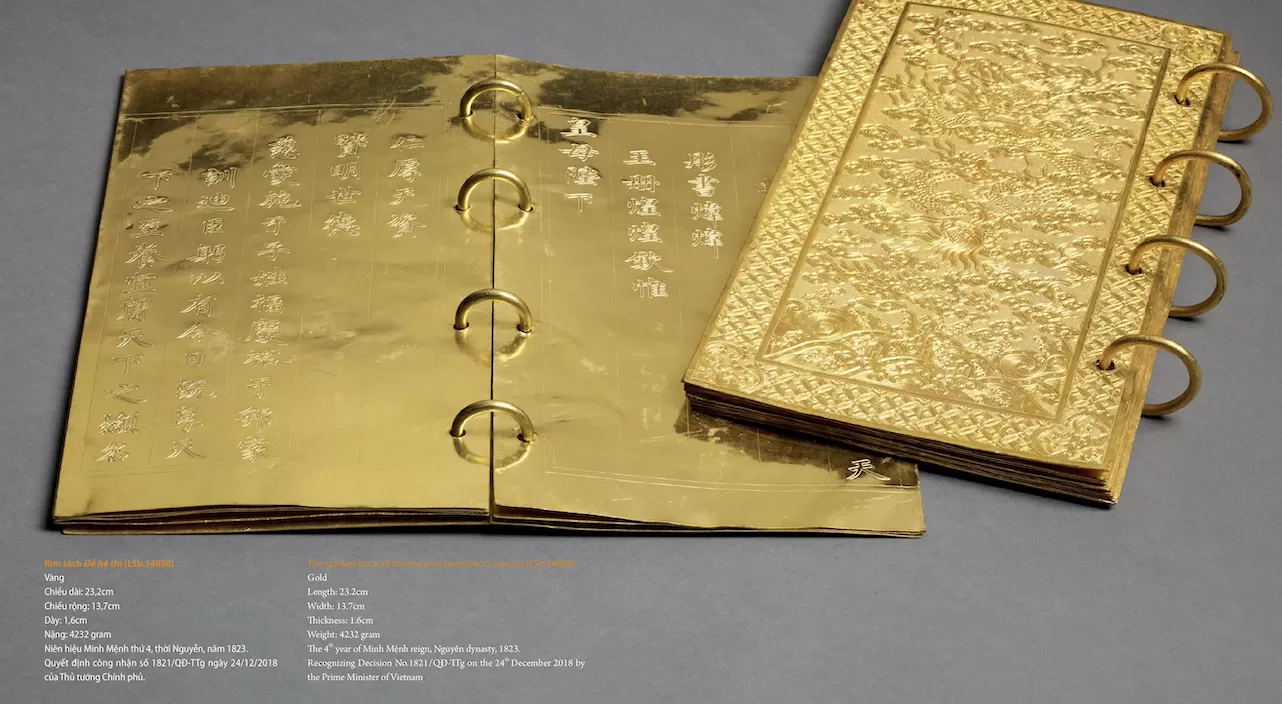 彤書煒煒
玉冊煌煌敬惟
聖母陛下
仁厚乎資
賢明世德
慈愛施于子姓福慶流于邦家
訓迪臣躬以有今日況尊天
下之至養宜膺天下之顯名
Kim sách Đế hệ thi (LSb.34880)
Vàng
Chiều dài: 23,2cm
Chiều rộng: 13,7cm
Dày: 1,6cm
Nặng: 4232 gram
Niên hiệu Minh Mệnh thứ 4, thời Nguyễn, năm 1823.
Quyết định công nhận số 1821/QĐ-TTg ngày 24/12/2018
của Thủ tướng Chính phủ.
The golden book of the (LSb.34880)
Gold
Length: 23.2cm
Width: 13.7cm
Thickness: 1.6cm
Weight: 4232 gram
The 4th year of Minh Mệnh reign, Nguyễn dynasty, 1823.
Recognizing Decision No.1821/QĐ-TTg on the 24th December 2018 by
the Prime Minister of Vietnam